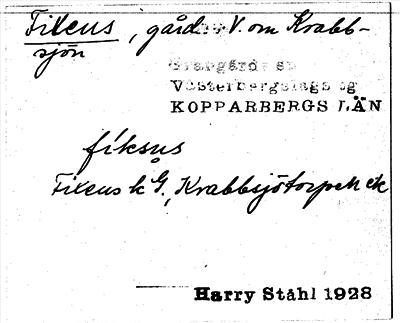 Fixcus, gård V. om Krabb-
sjön
Grangärde sn
Västerbergslags tg
KOPPARBERGS LÄN
fíksus
Fixcus k G., Krabbsjötorpet ek
Harry Ståhl 1928